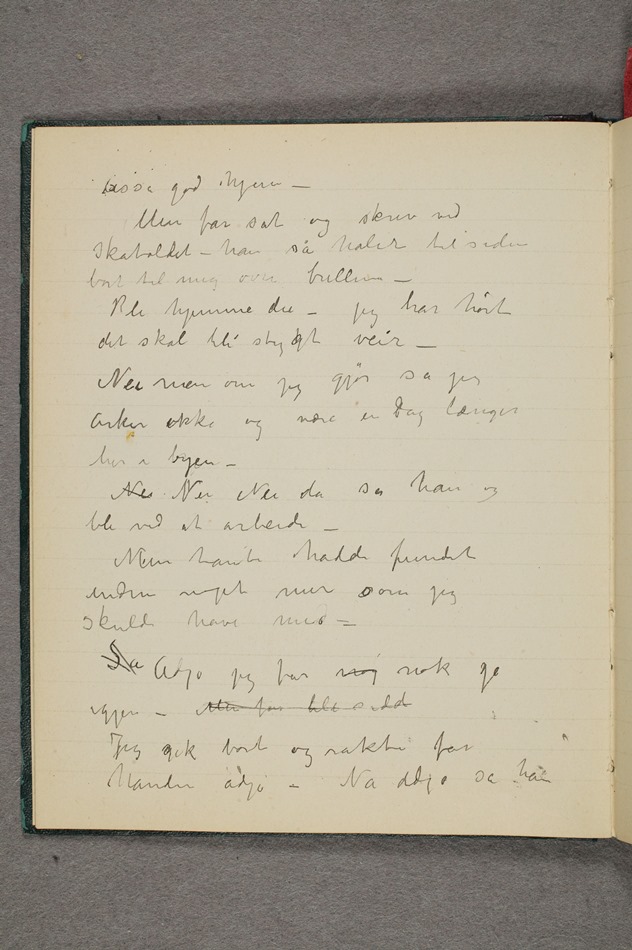 god igjen –
Men far sat og skrev ved
skatoldet – han så halvt til siden
bort til mig over brillen –
Bli hjemme du – jeg har hørt
det skal bli stygt veir –
Nei men om jeg gjør så jeg
orker ikke og være en Dag længer
her i byen –
Nei Nei Nei da sa han og
ble ved at arbeide –
Min tante hadde fundet
endnu noget mer som jeg
skulde have med –
Så Adjø jeg får nog nok gå
igjen – Men far ble sidd
Jeg gik bort og rakte far
Handen adjø – Na adjø sa han